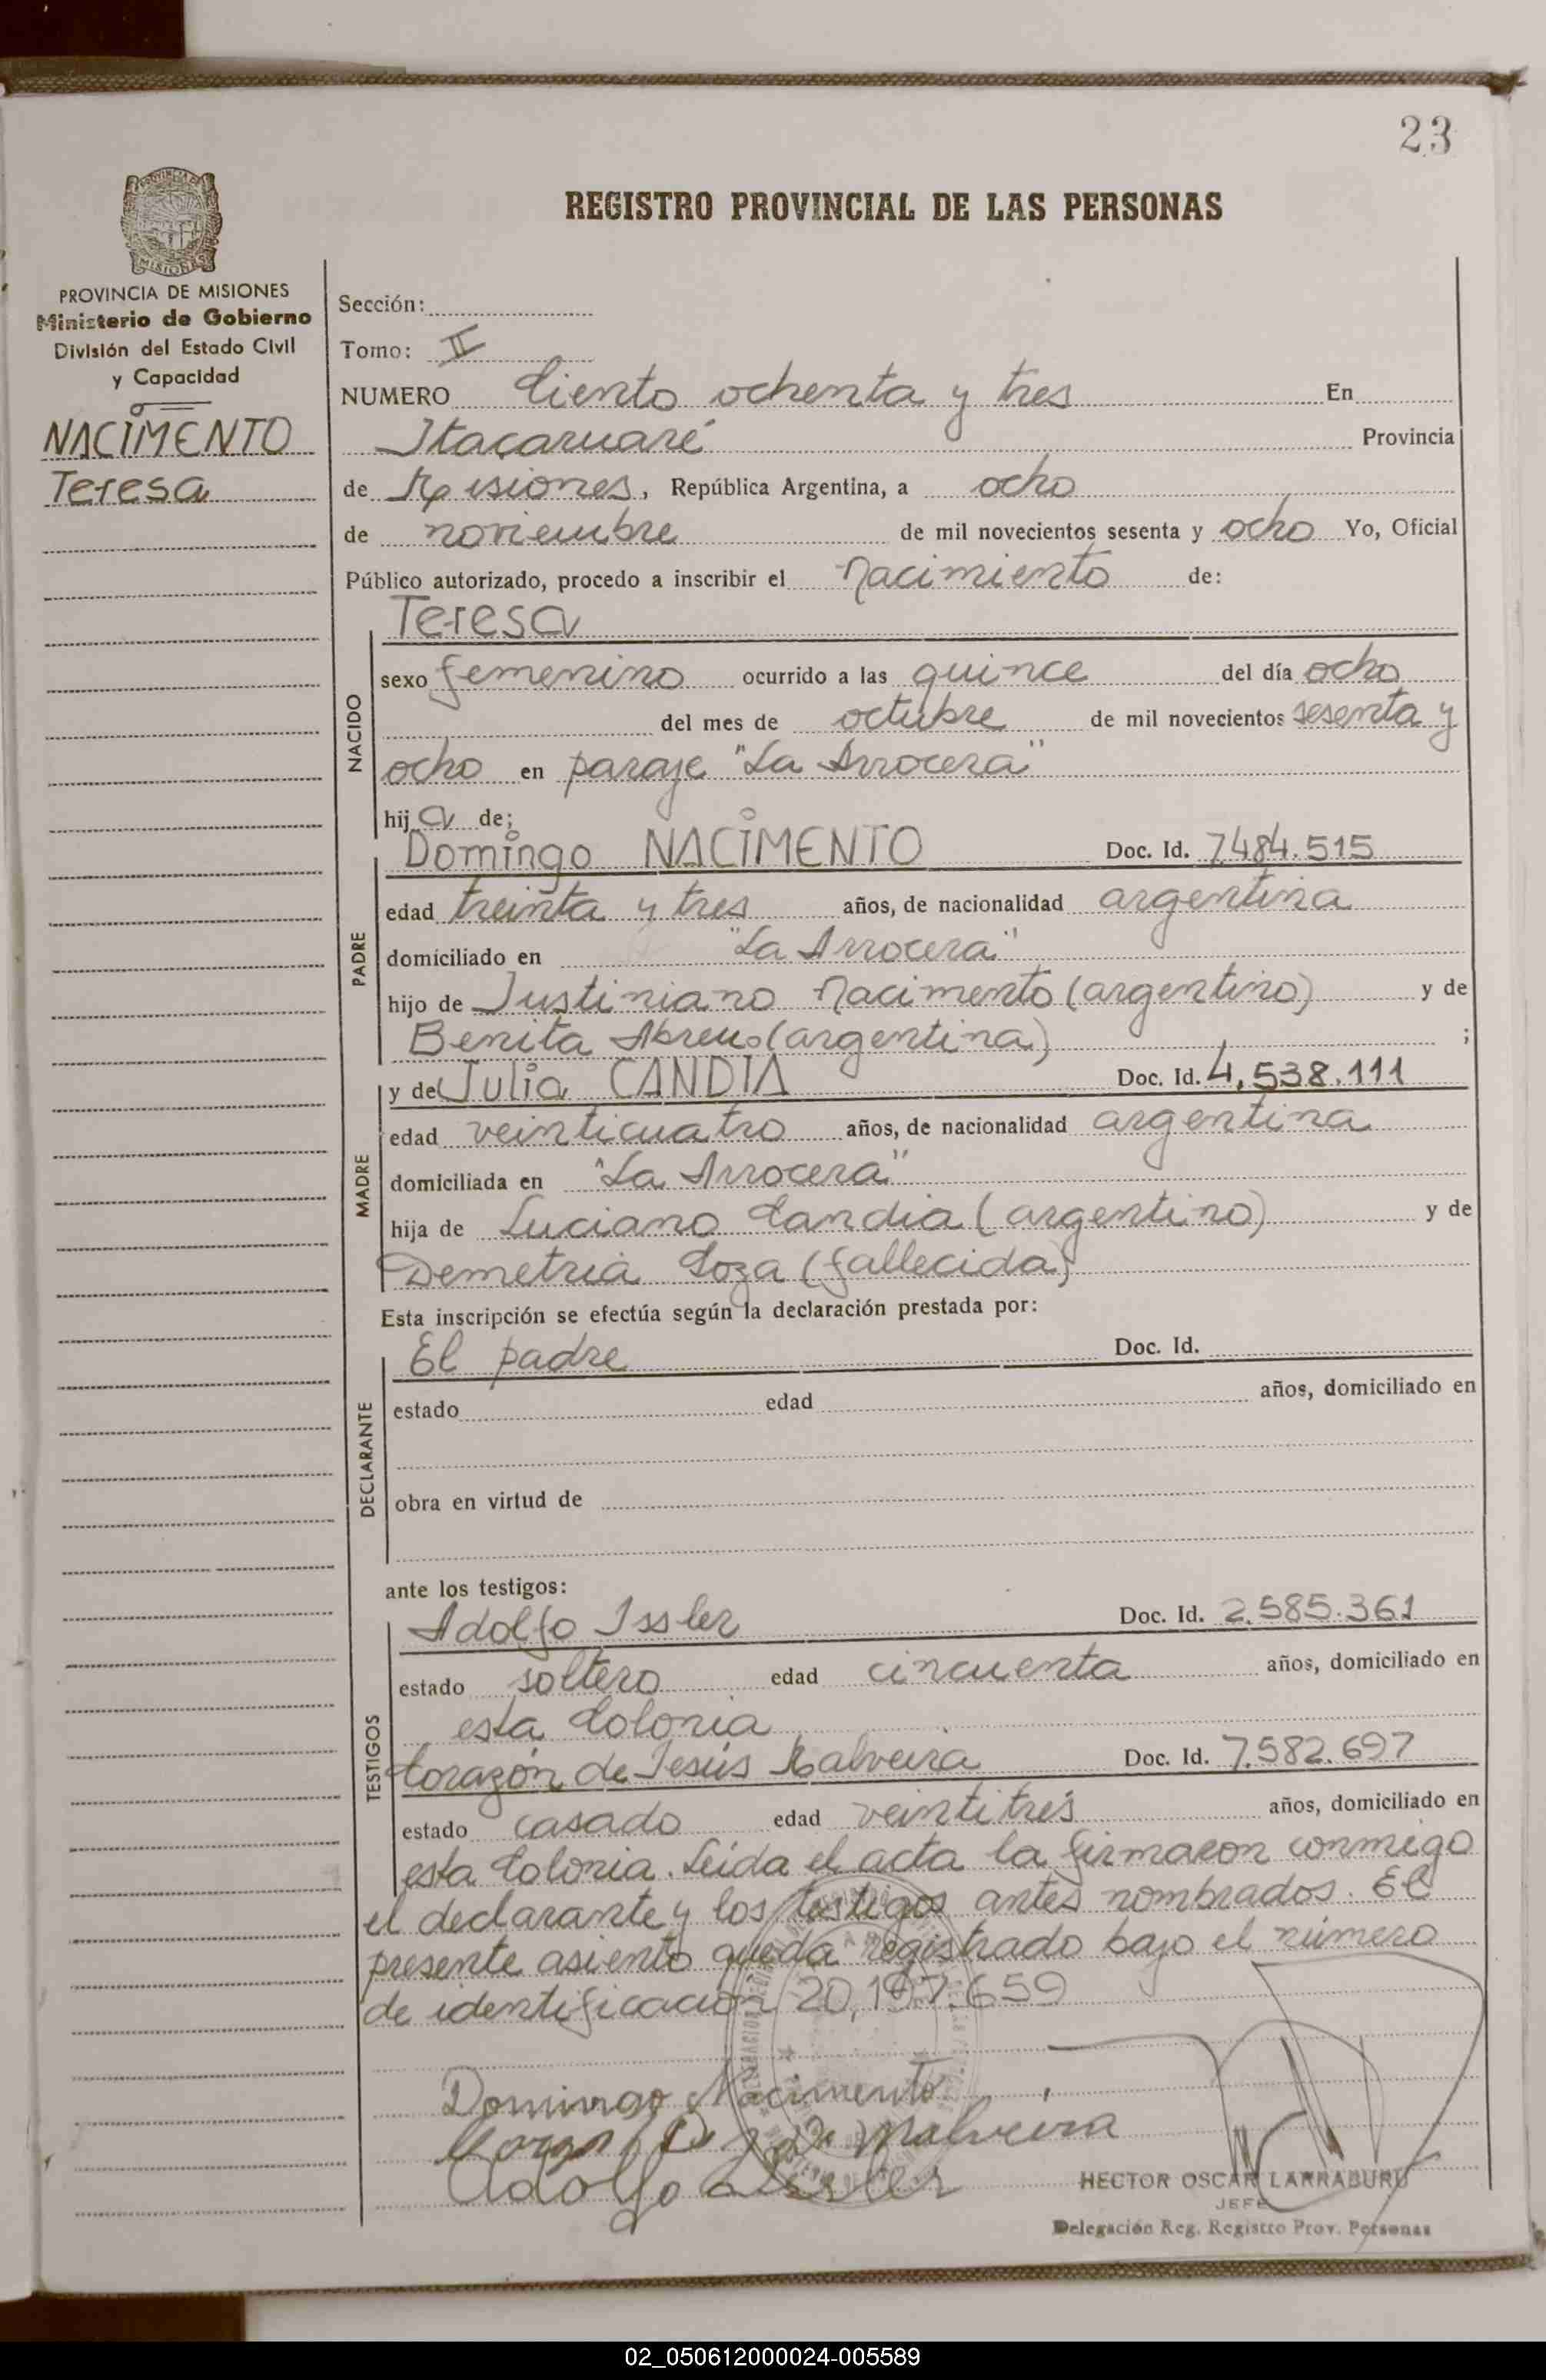 23
REGISTRO PROVINCIAL DE LAS PERSONAS
PROVINCIA DE MISIONES
Ministerio de Gobierno
División del Estado Civil
y Capacidad
NACIMENTO
Teresa
Sección:
Tomo: II
NUMERO Ciento ochenta y tres En
Itacaruaré Provincia
de Misiones, República Argentina, a ocho
de noviembre de mil novecientos sesenta y ocho Yo, Oficial
Público autorizado, procedo a inscribir el Nacimiento de:
Teresa
NACIDO
sexo femenino ocurrido a las quince del día ocho
del mes de octubre de mil novecientos sesenta y
ocho en paraje "La Arrocera"
hija de;
PADRE
Domingo NACIMENTO Doc. Id. 7.484.515
edad treinta y tres años, de nacionalidad argentina
domiciliado en "La Arrocera"
hijo de Justiniano Nacimento (argentino) y de
Benita Abreu (argentina) ;
MADRE
y de Julia CANDIA Doc. Id. 4.538.111
edad veinticuatro años, de nacionalidad argentina
domiciliada en "La Arrocera"
hija de Luciano Candia (argentino) y de
Demetria Soza (fallecida)
Esta inscripción se efectúa según la declaración prestada por:
DECLARANTE
El padre Doc. Id.
estado edad años, domiciliado en
obra en virtud de
ante los testigos:
TESTIGOS
Adolfo Issler Doc. Id. 2.585.361
estado soltero edad cincuenta años, domiciliado en
esta Colonia
Corazón de Jesús Malveira Doc. Id. 7.582.697
estado casado edad veintitrés años, domiciliado en
esta Colonia. Leída el acta la firmaron conmigo
el declarante y los testigos antes nombrados. El
presente asiento queda registrado bajo el número
de identificación 20,197.659
Domingo Nacimento
Malveira
Adolfo Issler
HECTOR OSCAR LARRABURU
JEFE
Delegación Reg. Registro Prov. Personas
02_050612000024-005589